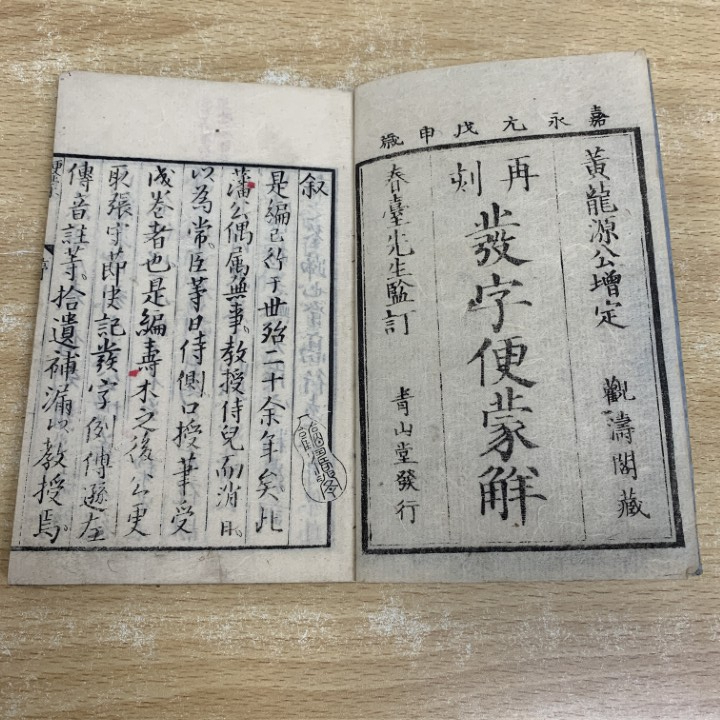 嘉永元戊申歳
黄龍源公増定
觀濤閣藏
再刻
發字便蒙解
春臺先生監訂
青山堂發行
叙
是編已行于世殆二十余年矣此
藩公偶属無事教授侍兒而消日
以為常臣等日侍側口授筆受
成巻者也是編壽木之後公更
取張守節史記發字例傳遜左
傳音註等拾遺補漏以教授焉